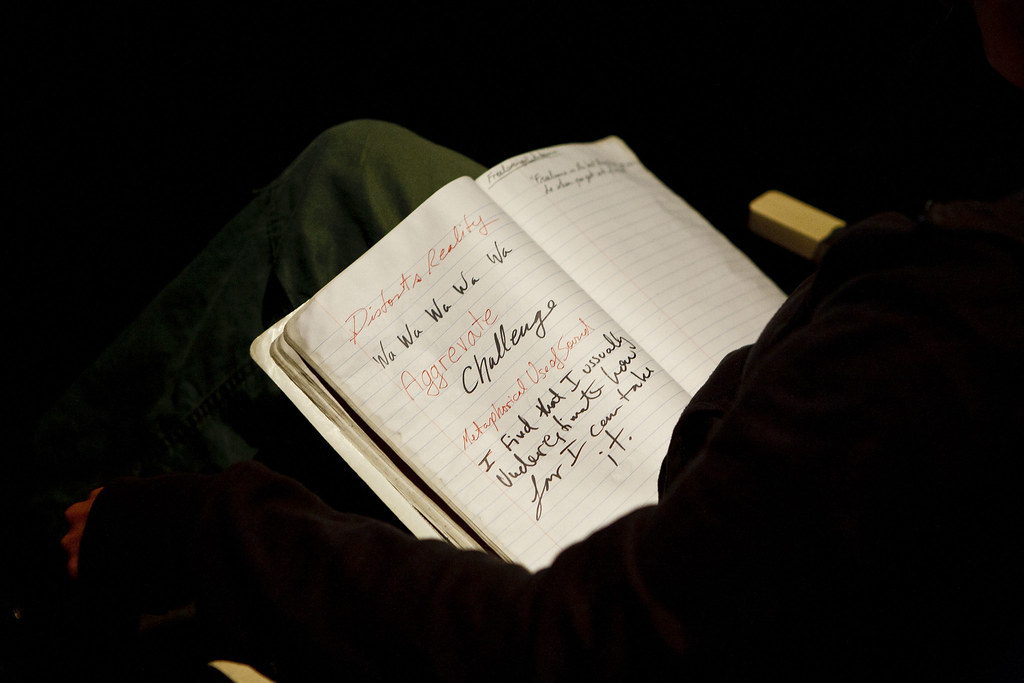 Distorts Reality
Wa Wa Wa Wa Wa
Aggrevate
Challenge
Metaphorical Use of Sound
I find that I ussually
Underestimate how
far I can take
it.